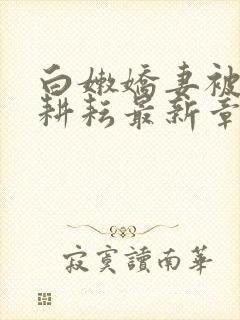 白嫩嬌妻被
耕耘最新章
寂寞讀南華